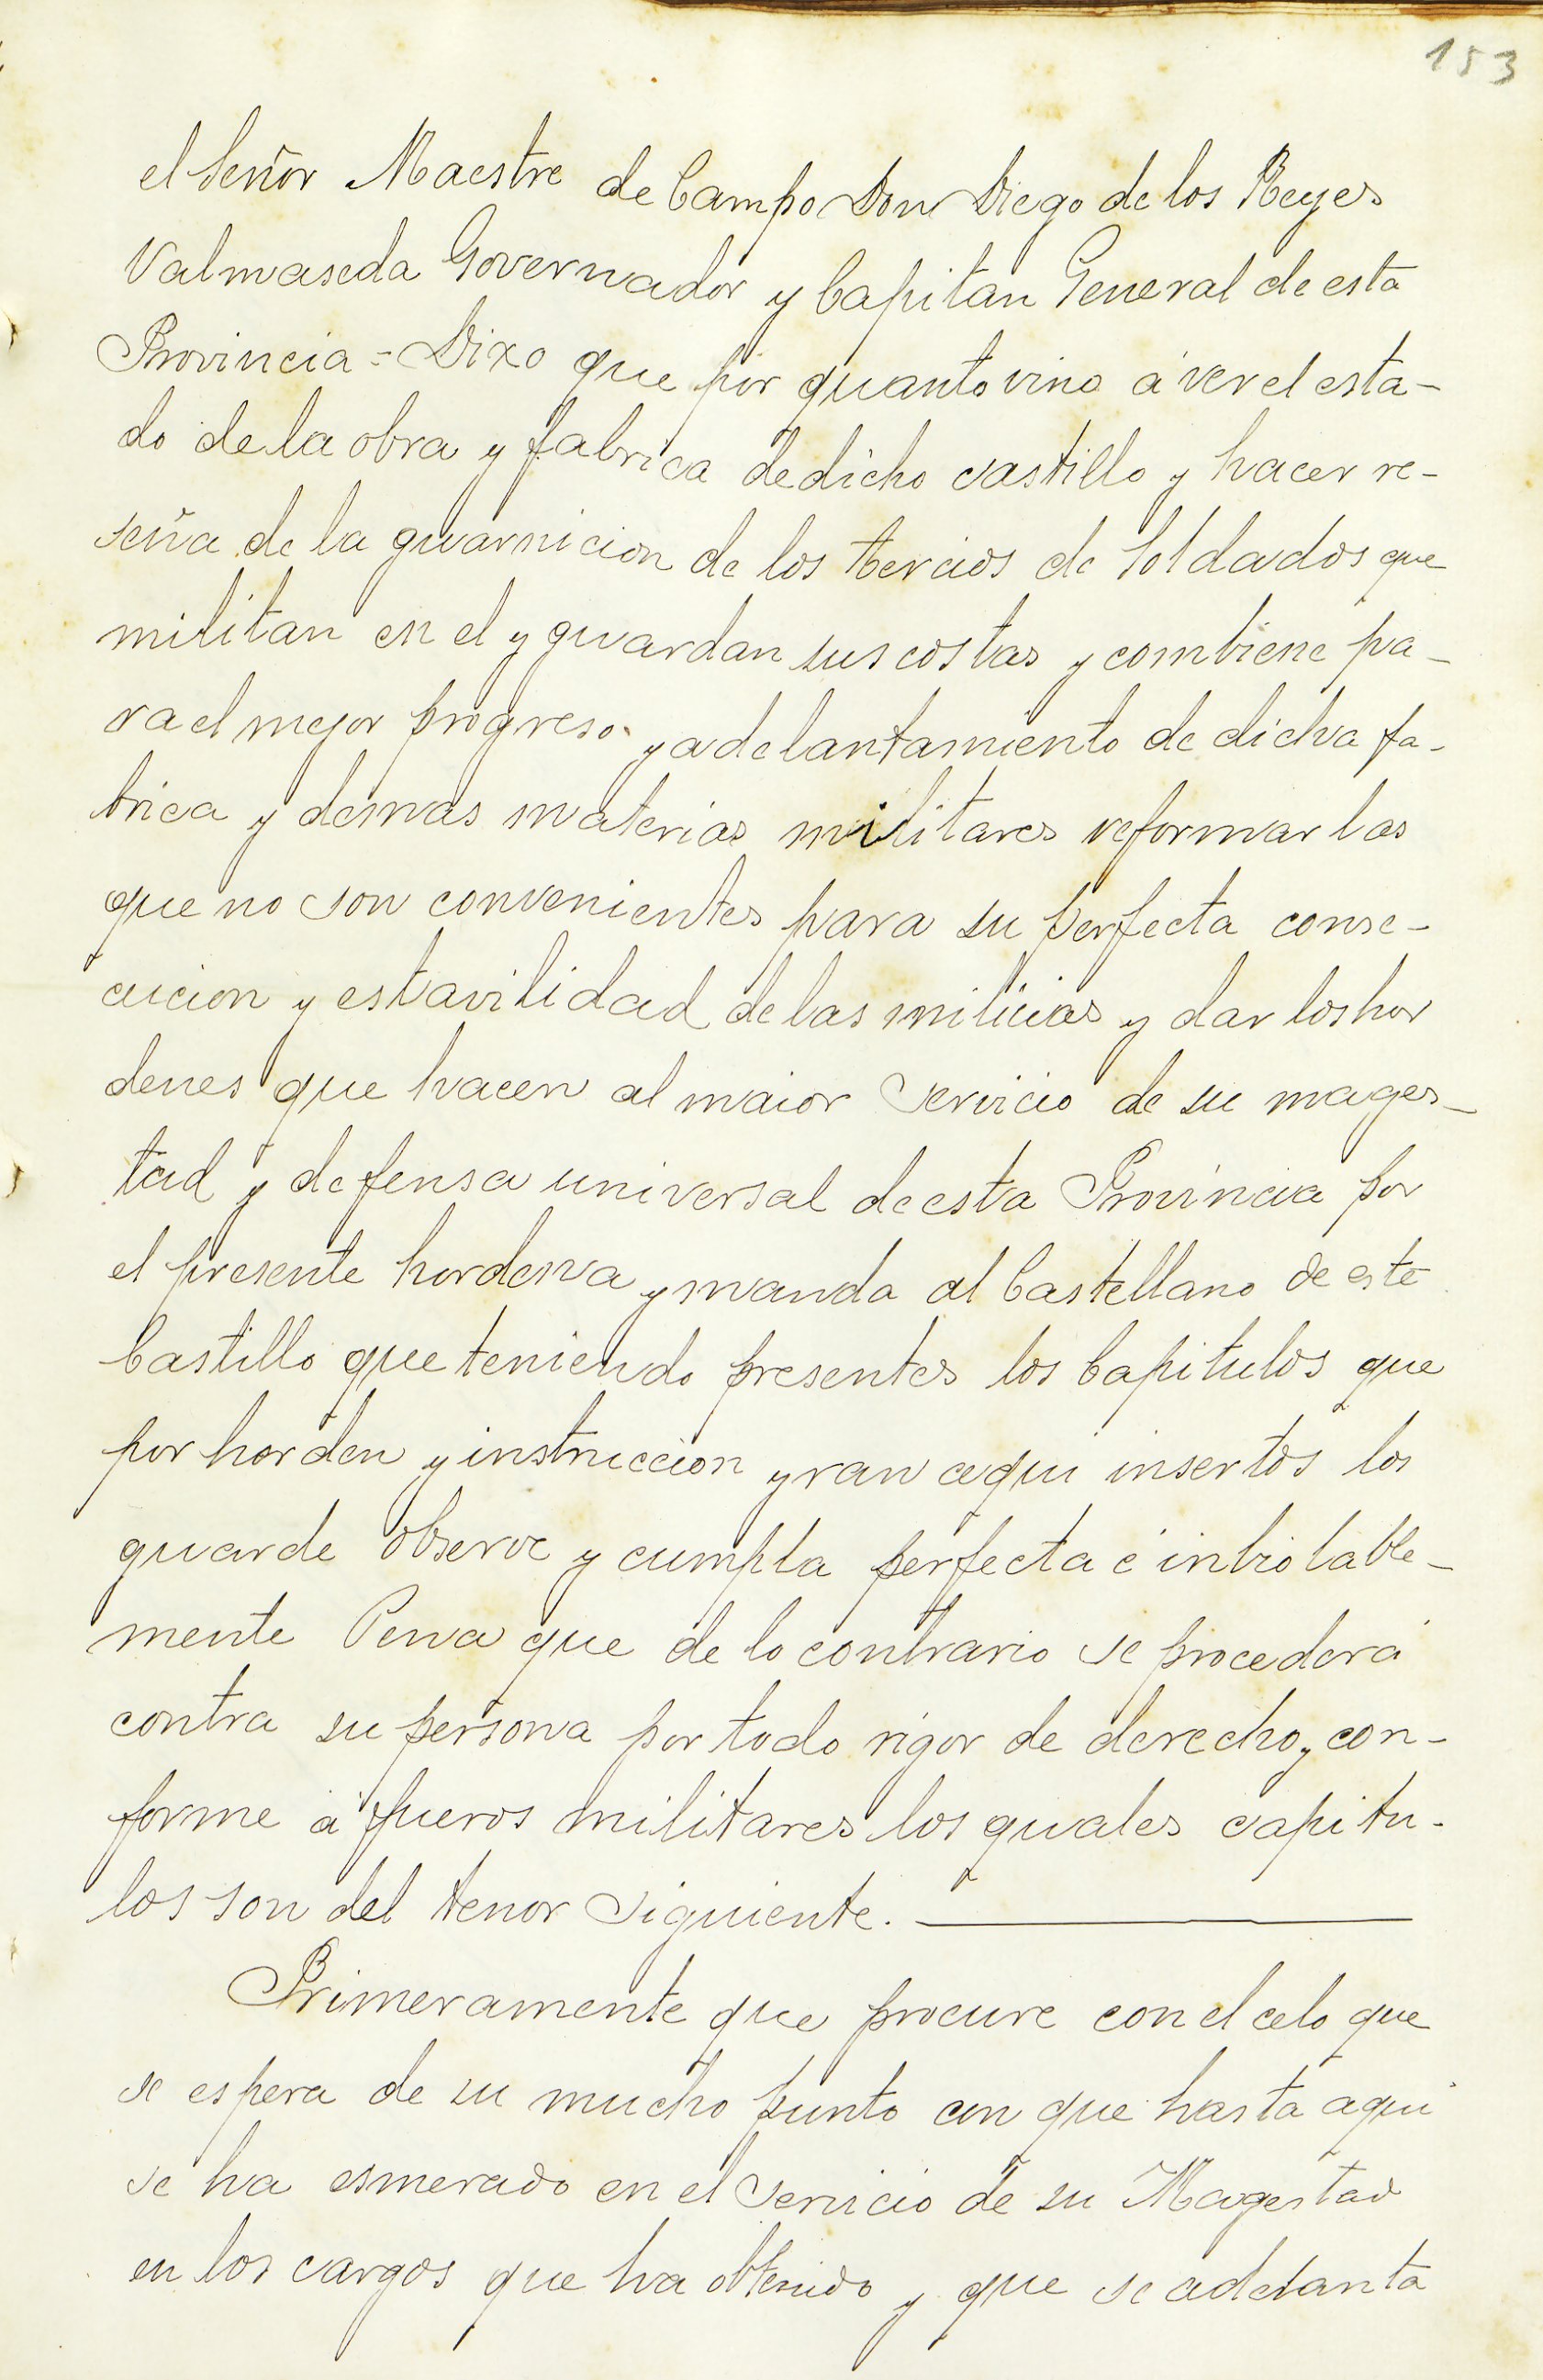 153
el Señor Maestre de Campo Don Diego de los Reyes
Valmaseda Governador y Capitan General de esta
Provincia = Dixo que por quanto vino á ver el esta-
do de la obra y fabrica de dicho castillo y hacer re-
seña de la guarnicion de los tercios de Soldados que
militan en el y guardan sus costas y combiene pa-
ra el mejor progreso y adelantamiento de dicha fa-
brica y demas materias militares reformar las
que no son convenientes para su perfecta conse-
cucion y estavilidad de las milicias y dar los hor
denes que hacen al maior servicio de su mages-
tad y defensa universal de esta Provincia por
el presente hordena y manda al Castellano de este
Castillo que teniendo presentes los Capitulos que
por horden y instruccion yran aqui insertos los
guarde observe y cumpla perfecta é inbiolable-
mente Pena que de lo contrario se procederá
contra su persona por todo rigor de derecho y con-
forme á fueros militares los quales capitu-
los son del tenor siguiente.
Primeramente que procure con el celo que
se espera de su mucho punto con que hasta aqui
se ha esmerado en el servicio de su Magestad
en los cargos que ha obtenido y que se adelanta